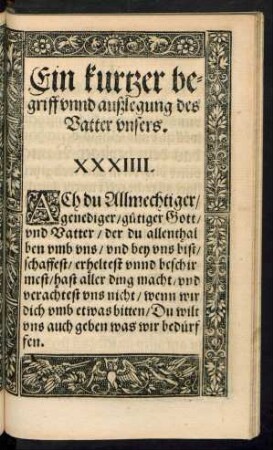 Ein kurtzer be-
griff vnnd außlegung des
Vatter vnsers.
XXXIIII.
ACh du Allmechtiger/
genediger/gütiger Gott/
vnd Vatter/ der du allenthal
ben vmb vns/ vnd bey vns bist/
schaffest/ erheltest vnnd beschir
mest/hast aller ding macht/vnd
verachtest vns nicht/ wenn wir
dich vmb etwas bitten/ Du wilt
vns auch geben was wir bedürf
fen.